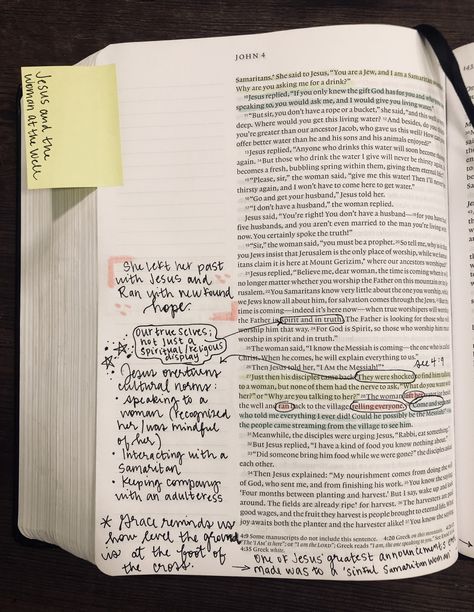 JOHN 4
Jesus and the
woman at the well
Samaritans. She said to Jesus, "You are a Jew, and I am a Samaritan
Why are you asking me for a drink?"
10Jesus replied, "If you only knew the gift God has for you and
speaking to, you would ask me, and I would give you living water."
11"But sir, you don't have a rope or a bucket," she said, "and this well
deep. Where would you get this living water? 12And besides, do you
you're greater than our ancestor Jacob, who gave us this well? How
offer better water than he and his sons and his animals enjoyed?"
13Jesus replied, "Anyone who drinks this water will soon become
14But those who drink the water I give will never be thirsty again.
becomes a fresh, bubbling spring within them, giving them eternal
15"Please, sir," the woman said, "give me this water! Then I'll never
thirsty again, and I won't have to come here to get water."
16"Go and get your husband," Jesus told her.
17"I don't have a husband," the woman replied.
Jesus said, "You're right! You don't have a husband—18for you have
five husbands, and you aren't even married to the man you're living with
now. You certainly spoke the truth!"
19"Sir," the woman said, "you must be a prophet. 20So tell me, why is it
you Jews insist that Jerusalem is the only place of worship, while we
itans claim it is here at Mount Gerizim, where our ancestors worshiped?"
21Jesus replied, "Believe me, dear woman, the time is coming when it
no longer matter whether you worship the Father on this mountain or in
rusalem. 22You Samaritans know very little about the one you worship,
we Jews know all about him, for salvation comes through the Jews. 23But
time is coming—indeed it's here now—when true worshipers will worship
the Father in spirit and in truth. The Father is looking for those who
worship him that way. 24For God is Spirit, so those who worship him must
worship in spirit and in truth."
25The woman said, "I know the Messiah is coming—the one who is called
Christ. When he comes, he will explain everything to us."
26Then Jesus told her, "I AM the Messiah!"
see 4:9
27Just then his disciples came back. They were shocked to find him talking
to a woman, but none of them had the nerve to ask, "What do you want with
her?" or "Why are you talking to her?" 28The woman left her water jar beside
the well and ran back to the village, telling everyone, 29"Come and see a man
who told me everything I ever did! Could he possibly be the Messiah?" 30So
the people came streaming from the village to see him.
31Meanwhile, the disciples were urging Jesus, "Rabbi, eat something."
32But Jesus replied, "I have a kind of food you know nothing about."
33"Did someone bring him food while we were gone?" the disciples asked
each other.
34Then Jesus explained: "My nourishment comes from doing the will
of God, who sent me, and from finishing his work. 35You know the saying,
'Four months between planting and harvest.' But I say, wake up and look
around. The fields are already ripe for harvest. 36The harvesters are paid
good wages, and the fruit they harvest is people brought to eternal life. What
joy awaits both the planter and the harvester alike! 37You know the saying,
4:9 Some manuscripts do not include this sentence. 4:20 Greek on this mountain.
"The 'I AM' is here"; or "I am the LORD"; Greek reads "I am, the one speaking to you." See Exodus
4:35 Greek white.
She left her past
with Jesus and
Ran with newfound
hope.
Our true selves;
not just a
spiritual/religious
display
Jesus overturns
cultural norms:
• speaking to a
woman (recognized
her/was mindful
of her)
• Interacting with a
Samaritan
• Keeping company
with an adulteress
* Grace reminds us
how level the ground
is at the foot of
the cross.
→ One of Jesus' greatest announcements
made was to a 'sinful Samaritan woman'